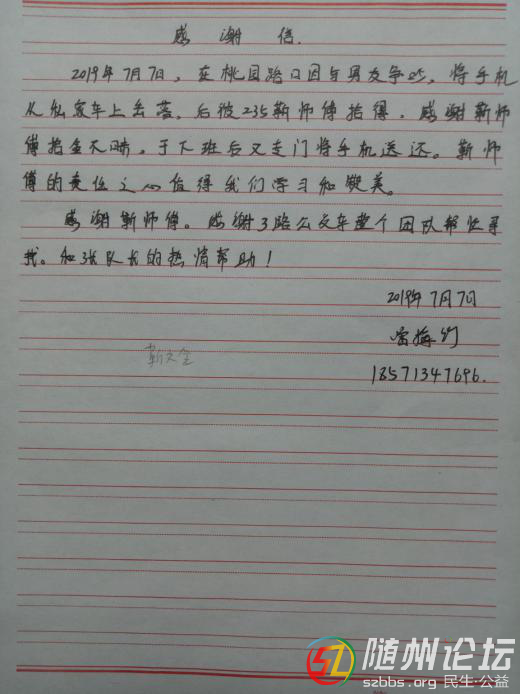 感谢信.
2019年7月7日，在桃园路口因与男友争吵，将手机
从私家车上丢落，后被235靳师傅拾得，感谢靳师
傅拾金不昧，于下班后又专门将手机送还。靳师
傅的责任之心值得我们学习和赞美。
感谢靳师傅。感谢3路公交车整个团队帮忙寻
我。和张队长的热情帮助！
2019年7月7日
雷梅竹
18571347696.
随州论坛
szbbs.org 民生·公益